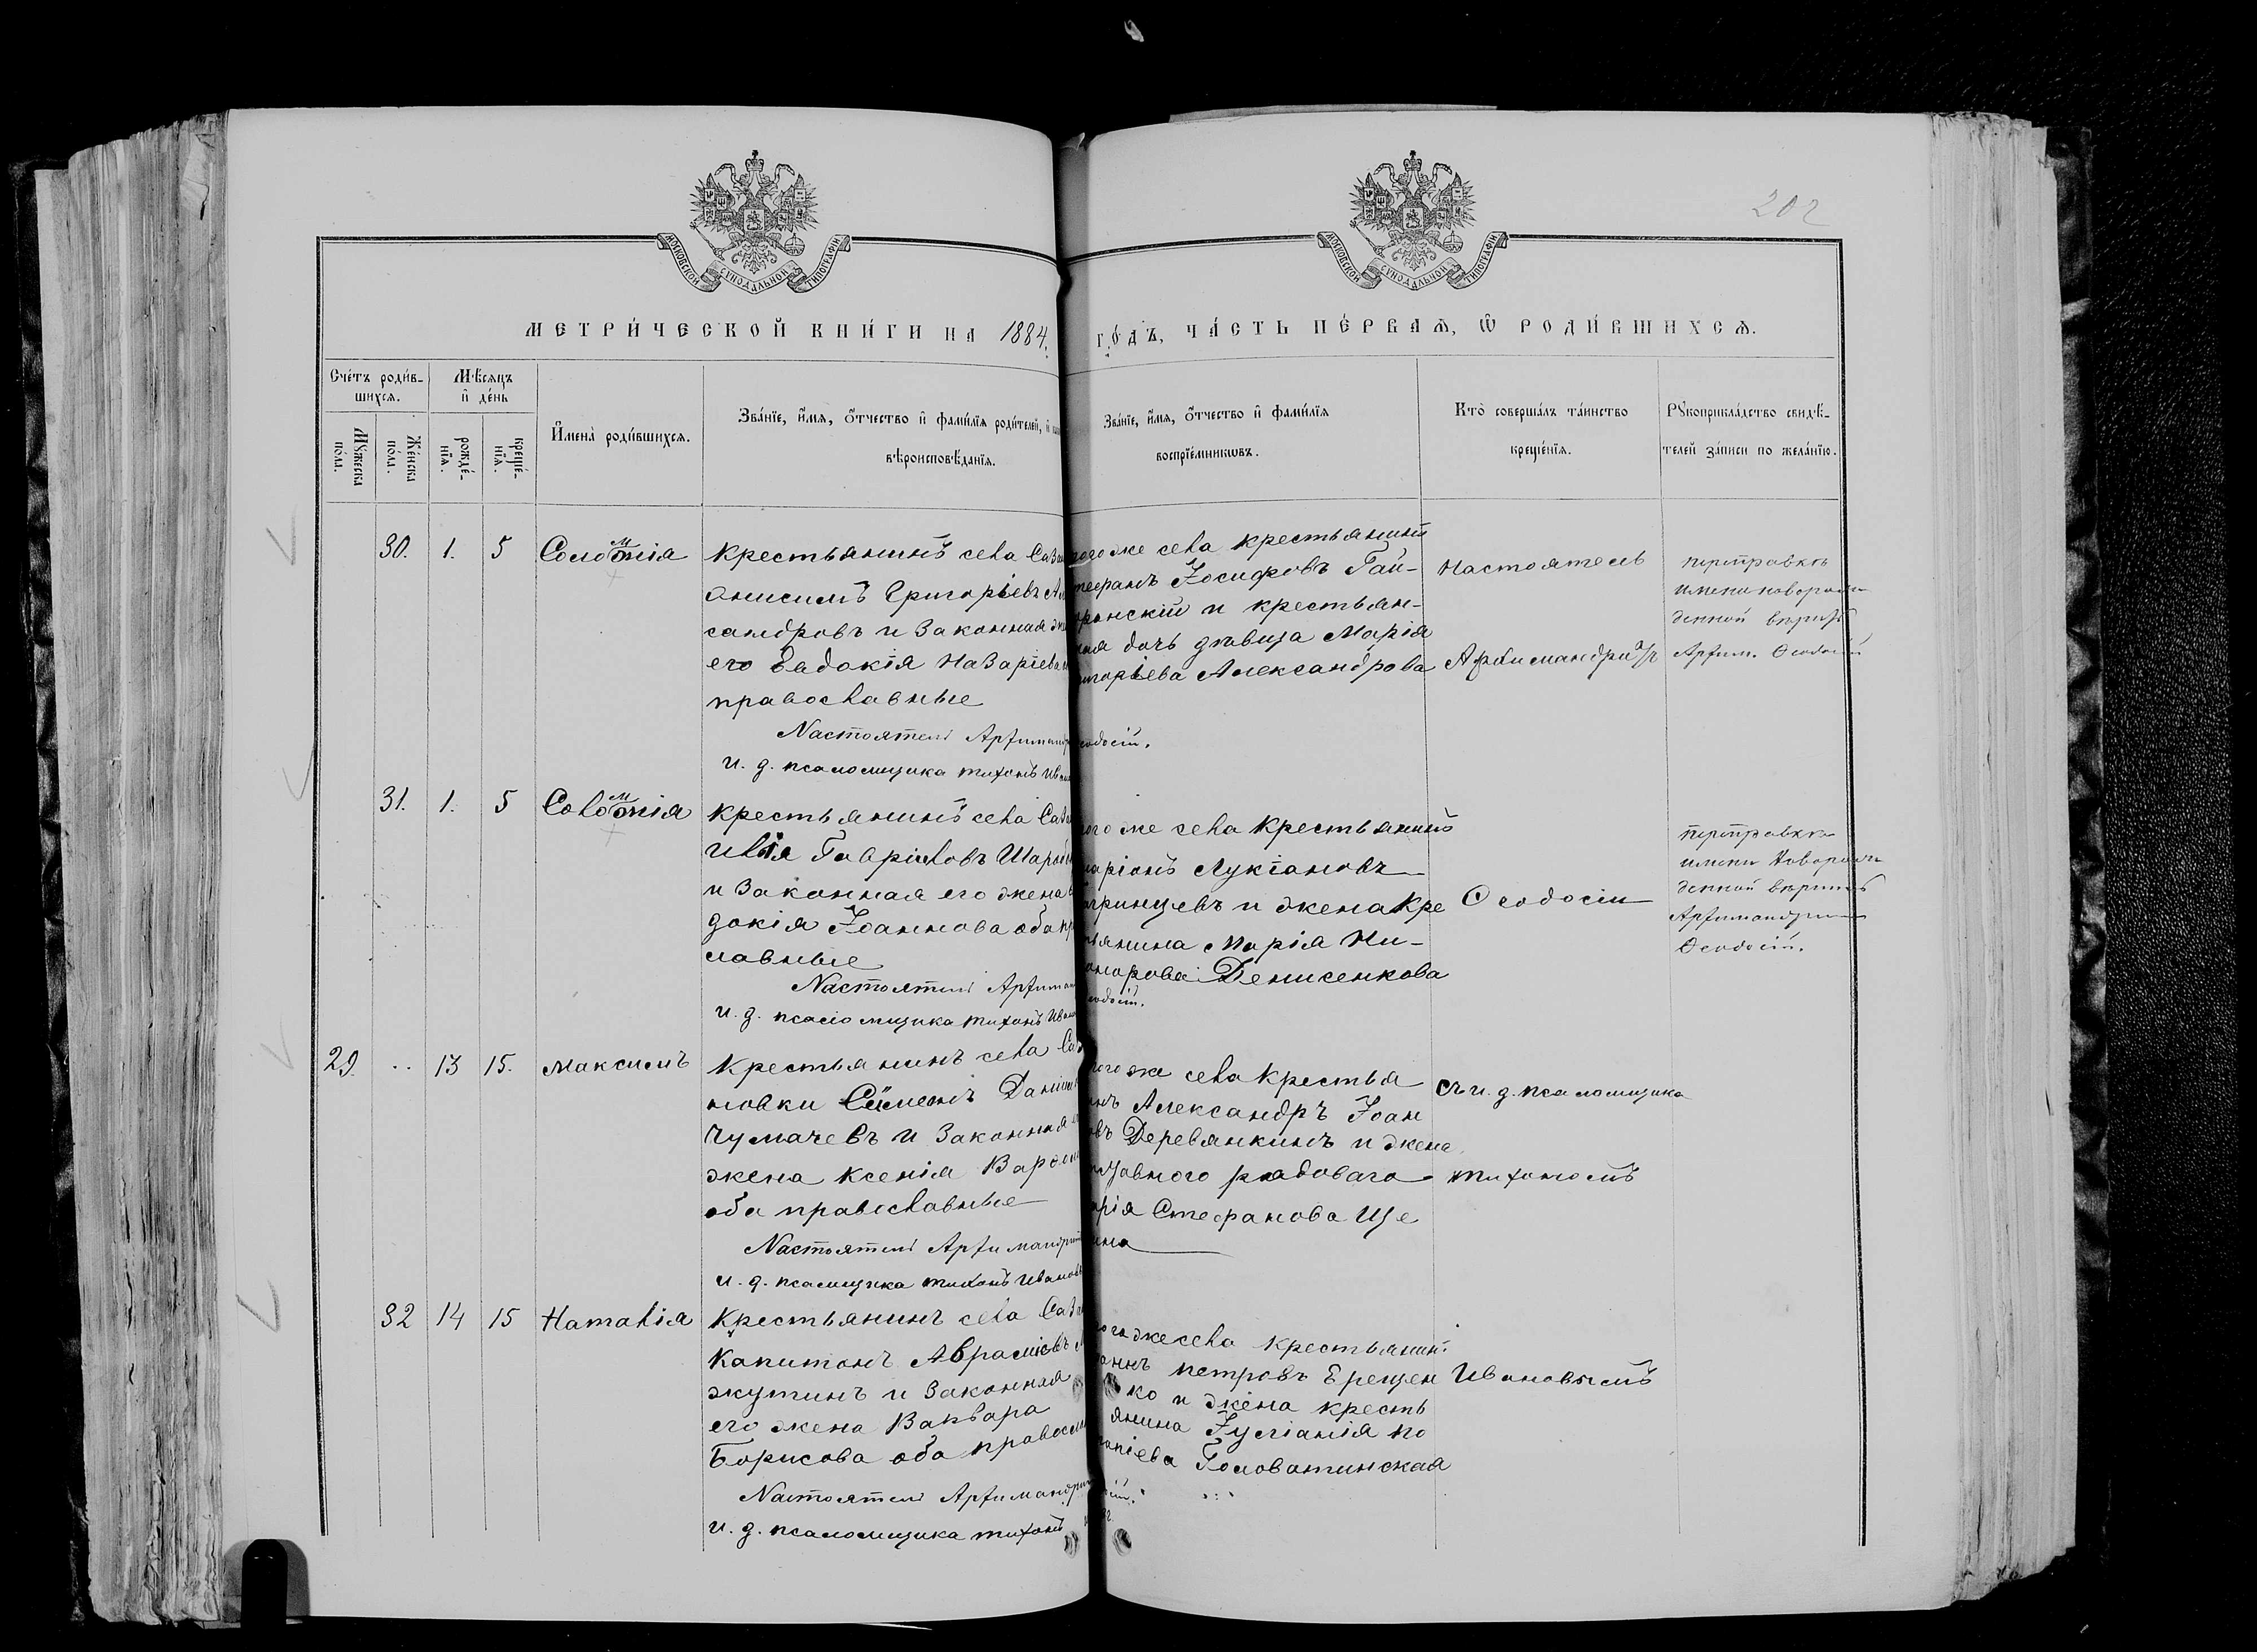 202
МОСКОВСКОЙ СУНОДАЛЬНОЙ ТИПОГРАФІИ
МОСКОВСКОЙ СУНОДАЛЬНОЙ ТИПОГРАФІИ
МЕТРИ́ЧЕСКОЙ КНИ́ГИ НА 1884
ГО́ДЪ, ЧА́СТЬ ПЕ́РВАѦ, Ѿ РОДИ́ВШИХСѦ.
Сче́тъ роди́в-
шихсѧ.
Мѣ́сѧцъ
и де́нь
Мꙋ́жеска
по́ла.
Же́нска
по́ла.
рожде́-
нїѧ.
креще́-
нїѧ.
И҆мена̀ роди́вшихсѧ.
Зва́нїе, и҆́мѧ, ѻ҆́тчество и҆ фами́лїѧ роди́телей, и҆
вѣроисповѣ́данїѧ.
Зва́нїе, и҆́мѧ, ѻ҆́тчество и҆ фами́лїѧ
воспрїе́мникѡвъ.
Кто̀ соверша́лъ та́инство
креще́нїѧ.
Рꙋкоприкла́дство свидѣ́-
телей за́писи по жела́нїю.
30. 1. 5 Соломонія
крестьянинъ села Саз
Анисимъ Григорьевъ Але
сандровъ и законная же
его Евдокія Назаріева
православные
Настоятель Архимандр
и. д. псаломщика Тихонъ Ив
того же села крестьянинъ
Іосифовъ Гай-
и крестьян-
дочь дѣвица Марія
Григорьева Александрова
еодосій.
Настоятель
Архимандритъ
поправка
имени новорож-
денной вѣрна
Архим. Ѳеодосій
31. 1. 5 Соломонія
крестьянинъ села Саз
Илія Гавріиловъ
и законная его жена
докія Іоаннова оба п
славные
Настоятель Архиман
и. д. псаломщика Тихонъ Ив
ого же села крестьянинъ
ларіонъ Лукіановъ
и жена кре
тьянина Марія Ни-
Денисенкова
еодосій.
Ѳеодосій
поправка
имени новорож-
денной вѣрна
Архимандрит
Ѳеодосій.
29 .. 13 15. Максимъ
крестьянинъ села Саз
новки Симеонъ Даніил
Чумачевъ и законная
жена Ксенія
оба православные
Настоятель Архимандрит
и. д. псаломщика Тихонъ Иванов
того же села крестья
нинъ Александръ Іоан
овъ Деревянкинъ и жена
рядоваго
арія Стефанова Ще
ина
съ и. д. псаломщика
Тихономъ
32 14 15 Наталія
Крестьянинъ села Саз
Капитонъ Авраміевъ
жутинъ и законная
его жена Варвара
Борисова оба правосл
Настоятель Архимандри
и. д. псаломщика Тихонъ
ого же села крестьянинъ
аннъ Петровъ Ерещен
ко и жена кресть
янина Іуліанія По
Головатинская
Ивановымъ